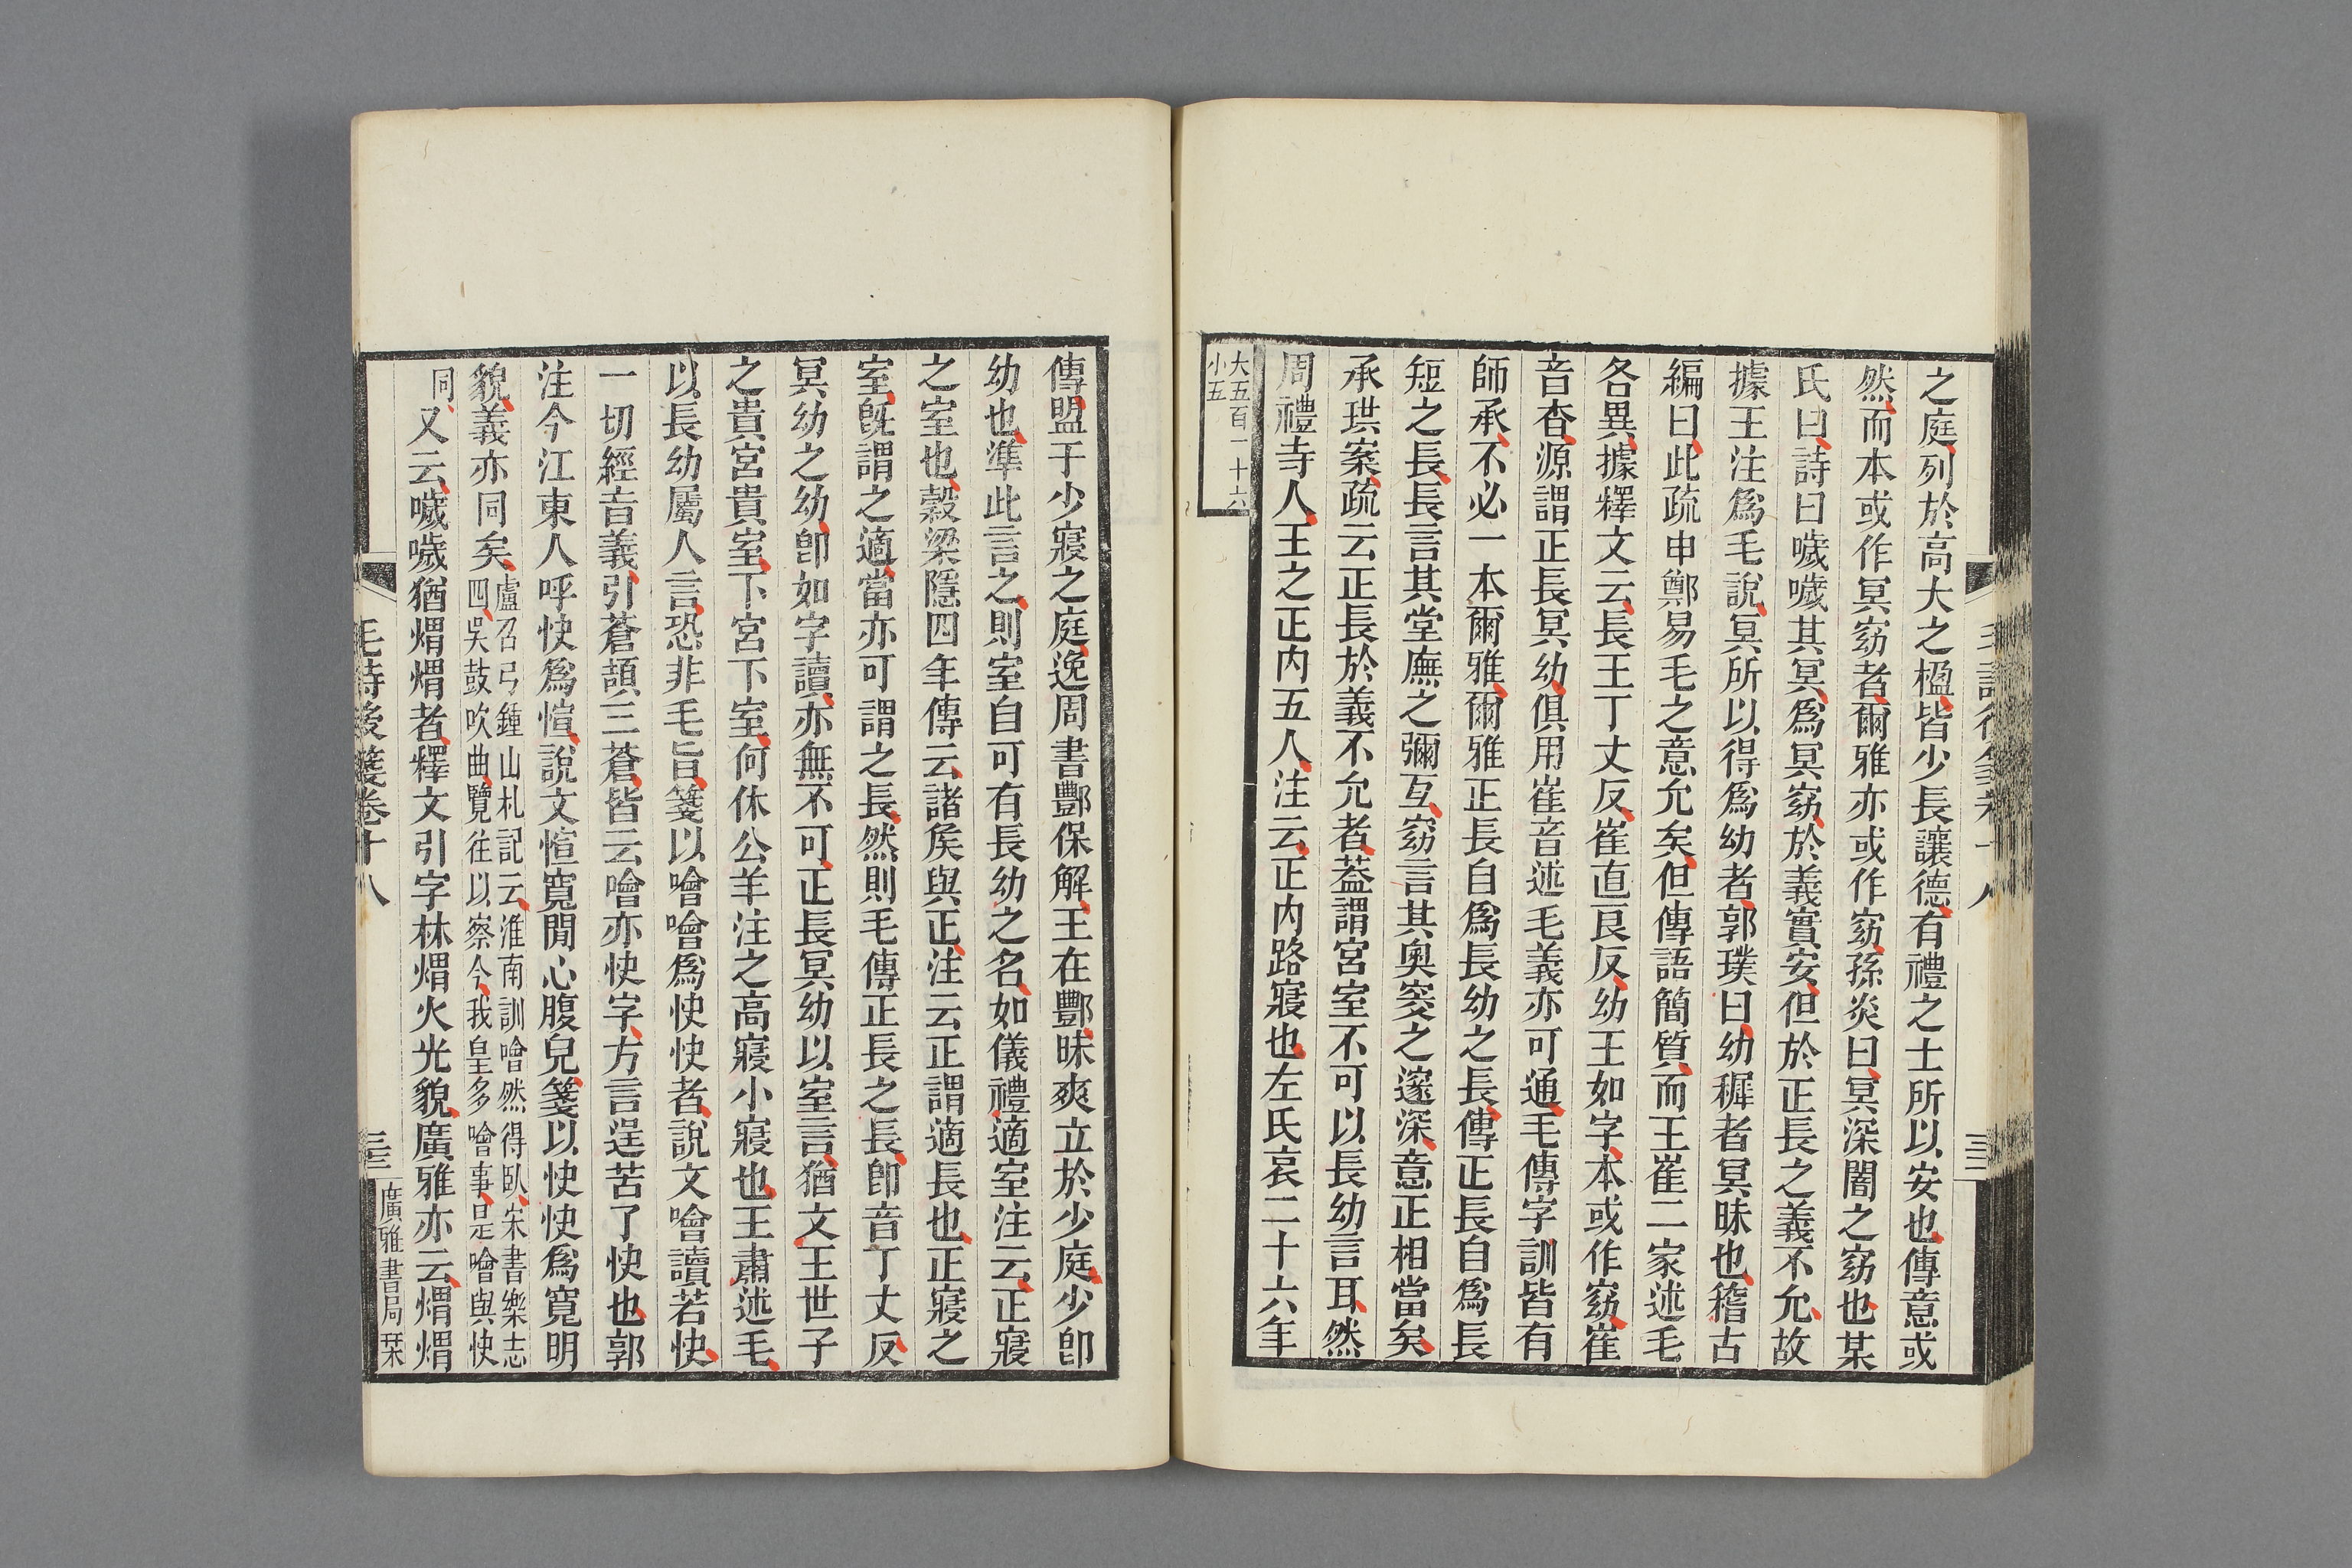 之庭列於高大之楹皆少長讓德有禮之士所以安也傳意或
然而本或作冥窈者爾雅亦或作窈孫炎曰冥深闇之窈也某
氏曰詩曰噦噦其冥爲冥窈於義實安但於正長之義不允故
據王注爲毛說冥所以得爲幼者郭璞曰幼穉者冥昧也稽古
編曰此疏申鄭易毛之意允矣但傳語簡質而王崔二家述毛
各異據釋文云長王丁丈反崔直艮反幼王如字本或作窈崔
音杳源謂正長冥幼俱用崔音述毛義亦可通毛傳字訓皆有
師承不必一本爾雅爾雅正長自爲長幼之長傳正長自爲長
短之長長言其堂廡之彌互窈言其奧窔之邃深意正相當矣
承珙案疏云正長於義不允者葢謂宮室不可以長幼言耳然
周禮寺人王之正內五人注云正內路寢也左氏哀二十六年
大五百一十六
小五
傳盟于少寢之庭逸周書酆保解王在酆昧爽立於少庭少卽
幼也準此言之則室自可有長幼之名如儀禮適室注云正寢
之室也穀梁隱四年傳云諸矦與正注云正謂適長也正寢之
室旣謂之適當亦可謂之長然則毛傳正長之長卽音丁丈反
冥幼之幼卽如字讀亦無不可正長冥幼以室言猶文王世子
之貴宮貴室下宮下室何休公羊注之高寢小寢也王肅述毛
以長幼屬人言恐非毛旨箋以噲噲爲快快者說文噲讀若快
一切經音義引蒼頡三蒼皆云噲亦快字方言逞苦了快也郭
注今江東人呼快爲愃說文愃寬閒心腹皃箋以快快爲寬明
貌義亦同矣盧召弓鍾山札記云淮南訓噲然得臥宋書樂志
四吳鼓吹曲覽往以察今我皇多噲事是噲與快
同又云噦噦猶煟煟者釋文引字林煟火光貌廣雅亦云煟煟
毛詩後箋卷十八
三三
廣雅書局栞